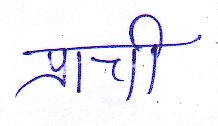 प्राची